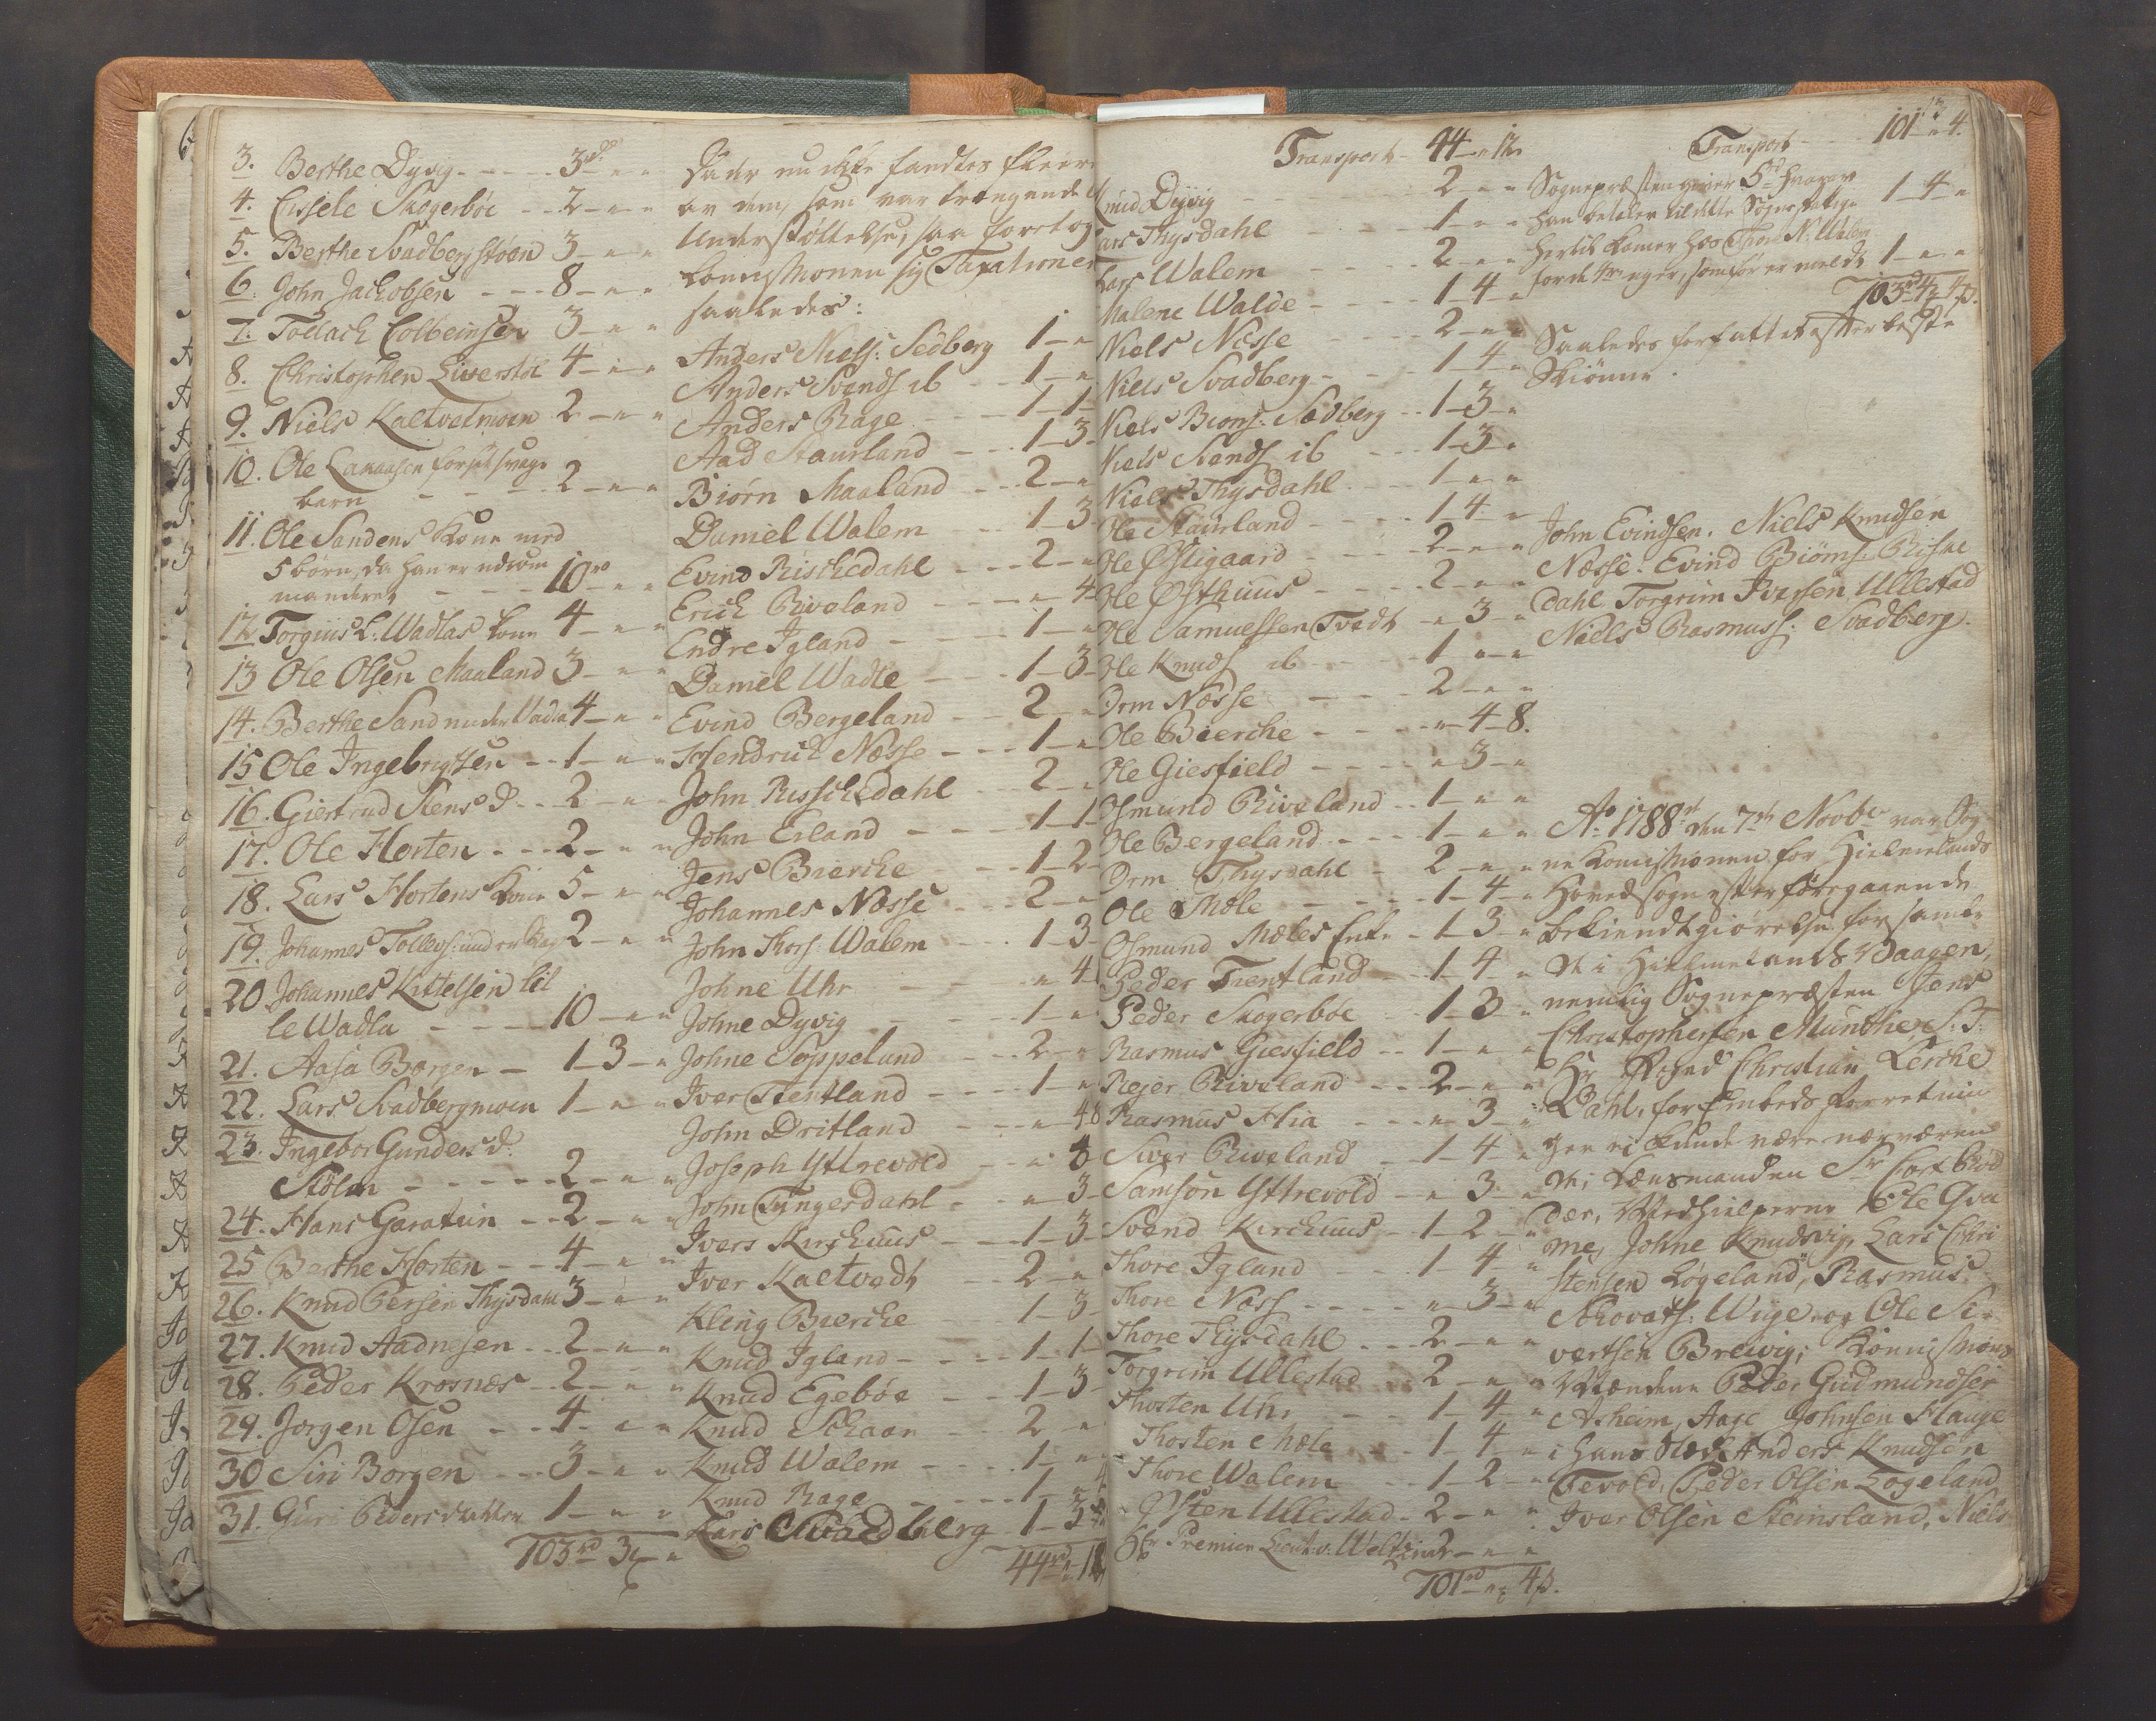 3. Berthe Dyvig - - - - 3 rd - "
4. Cissele Skogerböe - - 2 - " - "
5. Berthe Svadbergstöen 3 - " - "
6. John Jachobsen - - - 8 - " - "
7. Tollach Colbeinsen 3 - " - "
8. Christophen Liverstöl 4 - " - "
9. Niels Kaltvetmoen 2 - " - "
10. Ole Lanaasen for sit svage
barn - - - - 2 - " - "
11. Ole Sandens Kone med
5 börn, da han er udcom
manderet - - - 10 - " - "
12 Torgius L: Wadlas Kone 4 - " - "
13 Ole Olsen Maaland 3 - " - "
14. Berthe Sand under Vadla 4 - " - "
15 Ole Ingebrigtsen - - 1 - " - "
16. Giertrud Stens D. - - 2 - " - "
17. Ole Horten - - - 2 - " - "
18. Lars Hortens Kone 5 - " - "
19. Johannes Tollevs: under 2 - " - "
20 Johannes Kittelsen lil
le Wadla - - - - 10 - " - "
21. Aasa Borgen - 1 - 3 - "
22. Lars Svadbergmoen 1 - " - "
23. Ingebor Gunders D:
Stölen - - - - - 2 - " - "
24. Hans Garatun - - 2 - " - "
25 Berthe Horten - - 4 - " - "
26. Knud Persen Thysdahl 3 - " - "
27. Knud Aadnesen - - 2 - " - "
28. Peder Krosnæs - 2 - " - "
29. Jorgen Osen - - 4 - " - "
30 Siri Borgen - - - 3 - " - "
31. Guri Peders 1 - " - "
103 rd 3 - "
Da der nu ikke fandtes fleere
av dem, som var trængende
Understöttelse, saa foretog
Commissionen sig Taxationen
saaledes:
Anders Niels: Sedberg 1 - "
Anders Svends ib - - 1 - "
Anders Rage - - 1 - 1 -
Aad Staurland - - - 1 - 3 -
Biørn Maaland - - - 2 - "
Daniel Walem - - 1 - 3
Evind Rischedahl - - - 2 - "
Erich Riveland - - - - " - 4
Endre Igland - - - - 1 - "
Daniel Wadle - - - 1 - 3 -
Evind Bergeland - - 2 - "
Hendrick Næsse - - - 1 - "
John Risschedahl - - 2 - "
John Erland - - - - 1 - 1 -
Jens Bierche - - - 1 - 2 -
Johannes Næsse - - - 2 - "
John Thors: Walem - - - 1 - 3 -
Johne Uhr - - - - " 4
Johne Dyvig - - - - 1 - "
Johne Soppeland - - - 2 - "
Iver Tientland - - - 1 - "
John Dritland - - - " - 4 8
Joseph Yttrevold - - " 4
John Tyngesdahl - - " 3 -
Ivers Kirchuus - - - 1 - 3 -
Iver Kaltvedt - - 2 - "
Kleng Bierche - - 1 - 3 -
Knud Igland - - - - 1 - 1 -
Knud Egebøe - - - 1 - 3 -
Knud Schaar - - - 2 - "
Knud Walem - - - - 1 - "
Knud Rage - - - 1 - "
Lars Svadberg 1 - 3
44 rd " 12
Transport - 44 - " 12
Knud Dyvig - - - - 2 - " - "
Lars Thysdahl - - - - 1 - " - "
Lars Walem - - - - 2 - " - "
Malene Walde - - - - 1 - 4 - "
Niels Næsse - - - - 2 - " - "
Niels Svadberg - - - 1 - 4 - "
Niels Biørns: Sædberg - - 1 - 3 - "
Niels Svends ib - - - 1 - 3 - "
Niels Thysdahl - - - 1 - " - "
Ole Staurland - - - 1 - 4 - "
Ole Østigaard - - - 2 - " - "
Ole Østhuus - - - - 2 - " - "
Ole Samuelsen Tvedt - " - 3 - "
Ole Knuds ib - - - - 1 " - "
Orm Næsse - - - - 2 - " - "
Ole Bierche - - - - " - 4 - 8.
Ole Giesfield - - - - " 3 - "
Osmund Riveland - - 1 - " "
Ole Bergeland - - - 1 - " - "
Orm Thysdahl - 2 - " - "
Ole Mæle - - - - 1 - 4 - "
Osmund Mæles Enke - 1 - 3 - "
Peder Tientland - - 1 - 4 - "
Peder Skogerböe - - 1 - 3 - "
Rasmus Giesfield - - 1 - " - "
Rejer Riveland - - - 2 - " - "
Rasmus Hia - - - " - 3 - "
Siver Riveland - 1 - 4 - "
Samson Yttrevold - - " 3 - "
Svend Kirchuus - - 1 - 2 - "
Thore Igland - - 1 - 4 - "
Thore Næss - - - - - " 3 - "
Thore Thysdahl - - - 2 - " - "
Torgrim Ullestad - - 2 - " - "
Thosten Uhr - - - 1 - 4 - "
Thosten Mæle - - 1 - 4 - "
Thore Walem - - 1 - 2 - "
Østen Ullestad - 2 - " - "
Hr Premier Lieut. v: Weltzin 2 - " - "
101 rd " 4 s.
Transport - - - - 101 " 4.
Sognepræsten giver 5
han betaler til dette 1 - 4 - "
hertil komer hos Thore N: Walem
forde trenger, som før er meldt 1 - " - "
103 rd 4 4 s.
Saaledes forfattet efter beste
Skiönne.
John Evindsen. Niels Knudsen
Næsse. Evind Biörns: Riske
dahl. Torgrim Iversen Ullestad
Niels Rasmuss: Svadberg.
Ao 1788 den 7de Novbr var Sog
ne Comissionen for Hielmelands
Hovedsogn efter foregaaende
bekiendtgiörelse forsamle
de i Hielmelands Vaagen,
nemlig Sognepræsten Jens
Christophersen Munthe, S: T:
Hr Foged Christian Lerche
Dahl, for Embeds Forretnin
ger ei kunde være nærværen
de; Lænsmanden Sr Cort Röd
der, Medhielperne Ole Qva
me, Johne Knudsvig, Lars Chri
stensen Løgeland, Rasmus
Schovats: Wiige og Ole Si-
vertsen Breivig; Kommissions
Mændene Peder Gudmundsen
Asheim, Aage Johnsen Hauge
i hans Sted Anders Knudsen
Tevold, Peder Olsen Løgeland
Iver Olsen Steinsland, Niels